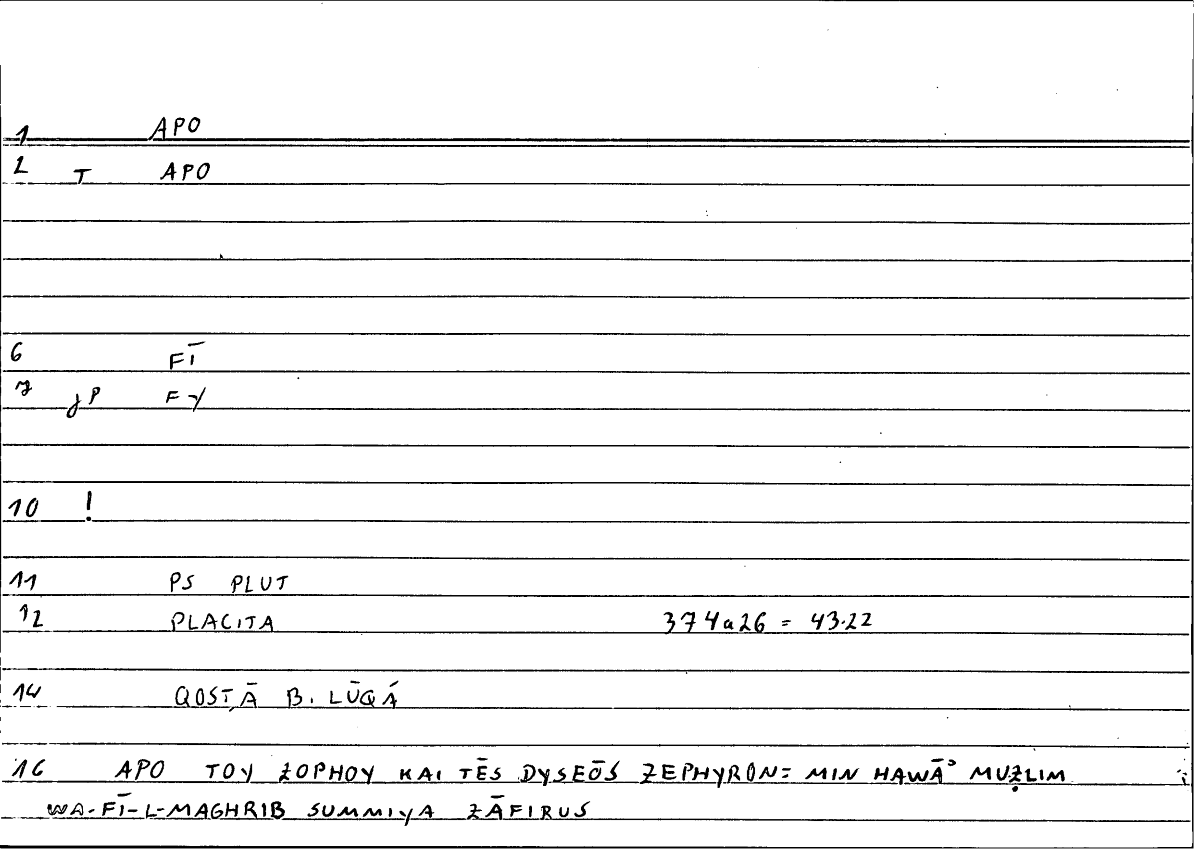 1 APO
2 T APO
6 FĪ
7 JP FY
10 !
11 PS PLUT
12 PLACITA 374a26 = 43.22
14 QOSṬĀ B. LŪQÁ
16 APO TOY ZOPHOY KAI TĒS DYSEŌS ZEPHYRON = MIN HAWĀʾ MUẒLIM
WA-FĪ-L-MAGHRIB SUMMIYA ZĀFIRUS